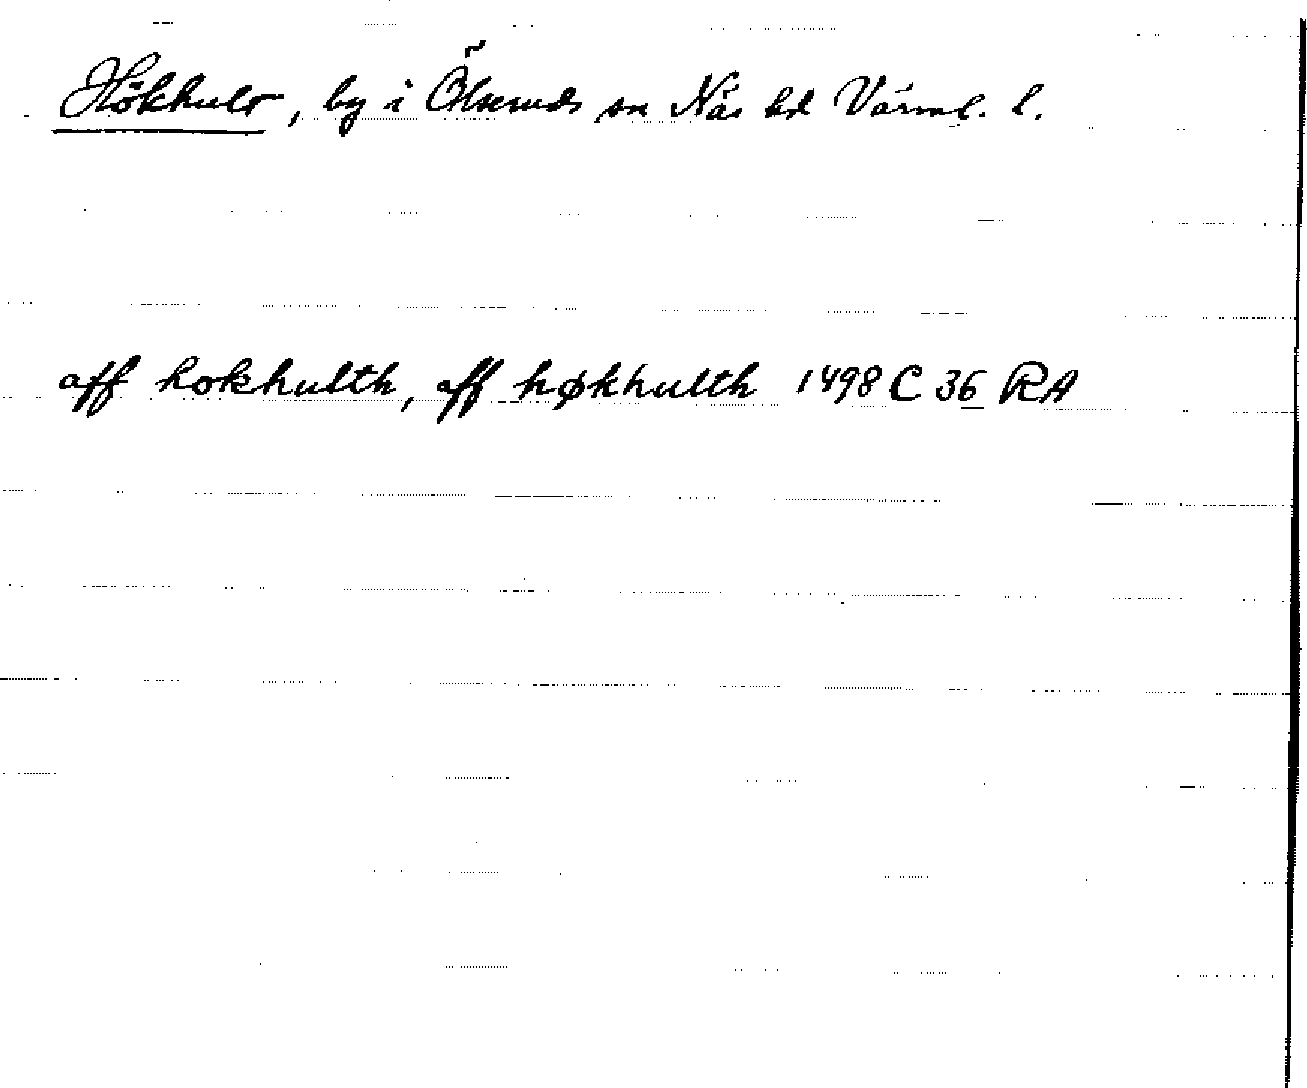 Hökhult, by i Ölseruds sn Näs hd Värml. l.
aff hokhulth, aff høkhulth 1498 C 36 RA